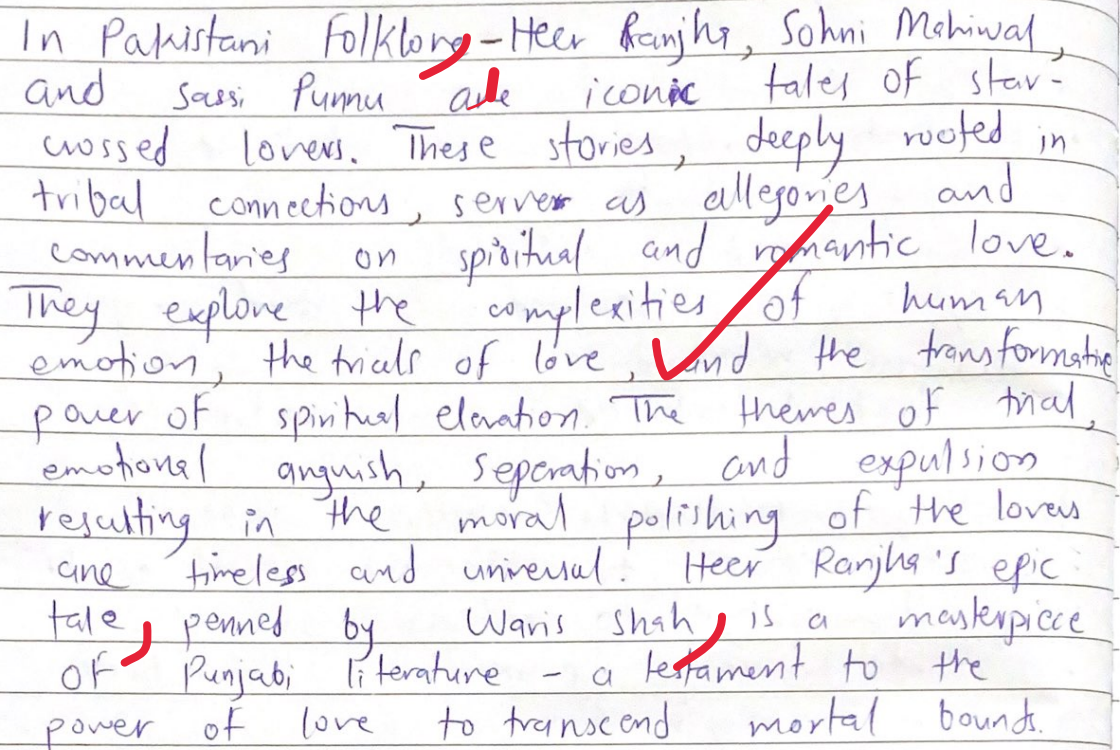 In Pakistani Folklore, - Heer Ranjha, Sohni Mahiwal,
and Sassi Punnu are iconic tales of star-
crossed lovers. These stories, deeply rooted in
tribal connections, serve as allegories and
commentaries on spiritual and romantic love.
They explore the complexities of human
emotion, the trials of love, and the transformative
power of spiritual elevation. The themes of trial,
emotional anguish, seperation, and expulsion
resulting in the moral polishing of the lovers
are timeless and universal. Heer Ranjha's epic
tale, penned by Waris Shah, is a masterpiece
of Punjabi literature - a testament to the
power of love to transcend mortal bounds.